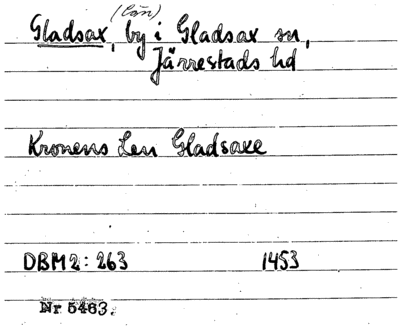 (län)
Gladsax, by i Gladsax sn,
Järrestads hd
Kronens Len Gladsaxe
DBM2: 263 1453
Nr 5463.